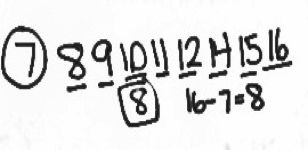 7 8 9 10 11 12 14 15 16
8 16-7=8